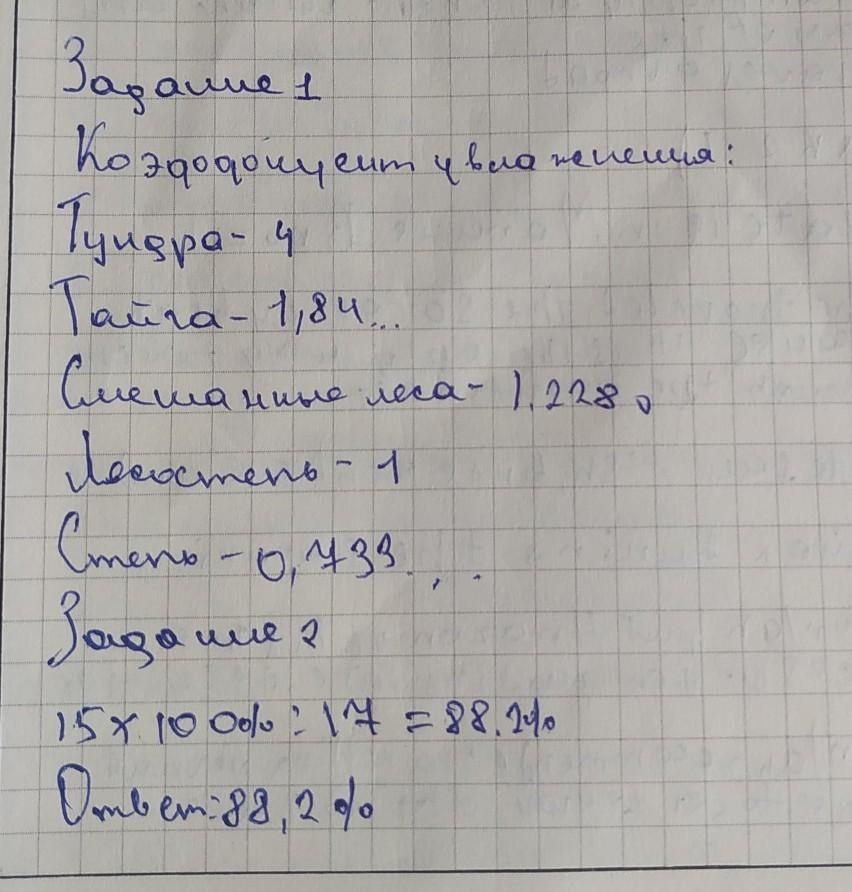 Задание 1
Коэффициент увлажнения:
Тундра - 4
Тайга - 1,84...
Смешанные леса - 1.228
Лесостепь - 1
Степь - 0,733...
Задание 2
15 × 100% : 17 = 88.2%
Ответ: 88,2%